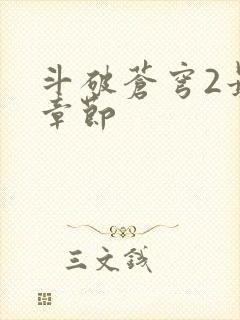 斗破蒼穹2最
章節
三文錢